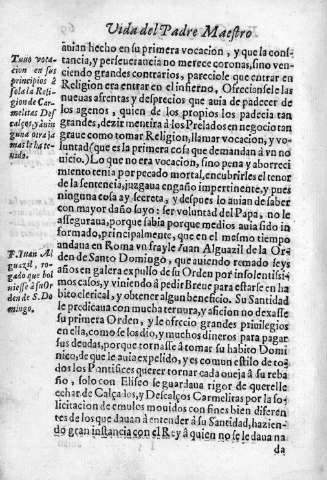 Vida del Padre Maestro
auian hecho en su primera vocacion, y que la cons-
tancia, y perseuerancia no merece coronas, sino ven-
ciendo grandes contrarios, pareciole que entrar en
Religion era entrar en el infierno, Ofrecianse le las
nueuas afrentas y desprecios que auia de padecer de
los agenos, quien de los propios los padecia tan
grandes, dezir mentira à los Prelados en negocio tan
graue como tomar Religion, llamar vocacion, y vo-
luntad (que es la primera cosa que demandan à vn no
nicio.) Lo que no era vocacion, sino pena y aborreci
miento tenia por pecado mortal, encubrirles el tenor
de la sentencia, juzgaua engaño impertinente, y pues
ninguna cosa ay secreta, y despues lo auian de saber
con mayor daño suyo: ser voluntad del Papa, no le
asseguraua, porque sabia porque medios auia sido in
formado, principalmente, que en el mesmo tiempo
andaua en Roma vn frayle Iuan Alguazil de la Or-
den de Santo Domingo, que auiendo remado seys
años en galera expulso de su Orden por insolentissi-
mos casos, y viniendo à pedir Breue para estarse en ha
bito clerical, y obtener algun beneficio. Su Santidad
le predicaua con mucha ternura, y aficion no dexasse
su primera Orden, y le ofrecio grandes privilegios
en ella, como se los dio, y muchos dineros para pagar
sus deudas, porque tornasse à tomar su habito Domi
nico, de que le auia expelido, y es comun estilo de to-
dos los Pontifices querer tornar cada oueja à su reba
ño, solo con Eliseo se guardaua rigor de querelle
echar de Calçados, y Descalços Carmelitas por la so-
licitacion de emulos mouidos con fines bien diferen
tes de los que dauan à entender à su Santidad, hazien-
do gran instancia con el Rey à quien no se le daua na
da
Tuuo vota-
cion en sus
principios à
sola la Reli-
gion de Car-
melitas Des
calços, y à nin
guna otra ja
mas le ha te-
nida.
F. Iuan Al
guazil, ro-
gado que bol
uiesse à su Or
den de S. Do
mingo.